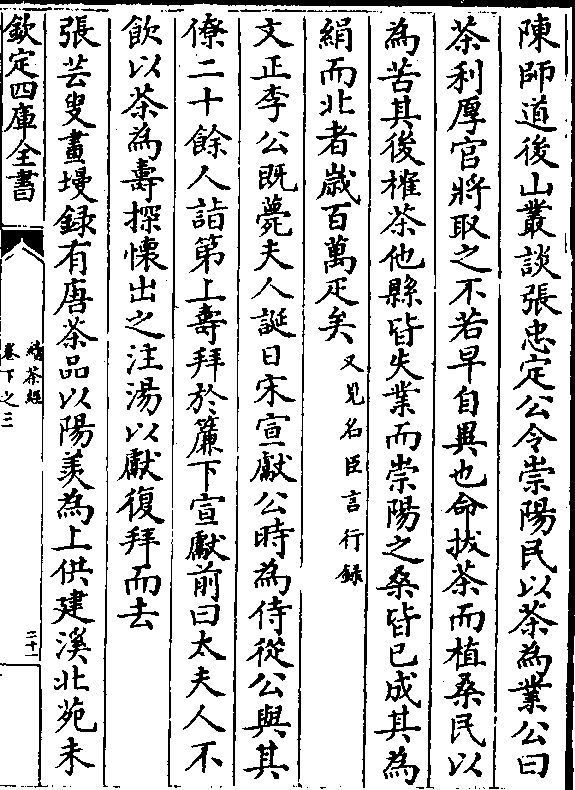 陳師道後山叢談張忠定公令崇陽民以茶為業公曰
茶利厚官將取之不若早自異也命拔茶而植桑民以
為苦其後榷茶他縣皆失業而崇陽之桑皆已成其為
絹而北者歲百萬疋矣又見名臣言行録
文正李公既薨夫人誕日宋宣獻公時為侍從公與其
僚二十餘人詣第上壽拜於簾下宣獻前曰太夫人不
飲以茶為壽探懷出之注湯以獻復拜而去
張芸叟畫墁録有唐茶品以陽羡為上供建溪北苑未
欽定四庫全書
續茶經
卷下之三
三十一